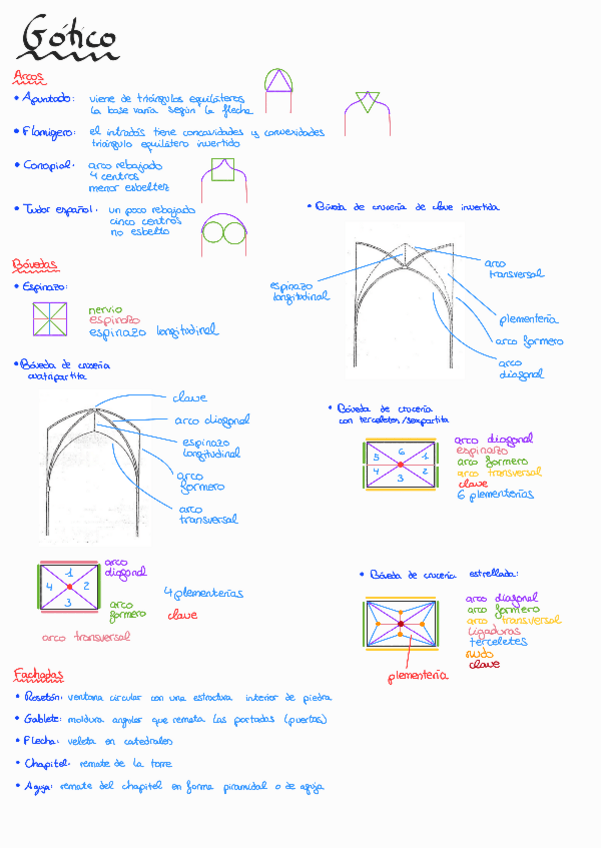 Gótico
Arcos
• Apuntado: viene de triángulos equiláteros
la base varía según la flecha
• Flamígero: el intradós tiene concavidades y convexidades
triángulo equilátero invertido
• Conopial: arco rebajado
4 centros
menor esbeltez
• Tudor español: un poco rebajado
cinco centros
no esbelto
Bóvedas
• Espinazo:
nervio
espinazo
espinazo longitudinal
• Bóveda de crucería
cuatripartita
clave
arco diagonal
espinazo
longitudinal
arco
formero
arco
transversal
arco
diagonal
1
4 2
3
arco
formero
4 plementerías
clave
arco transversal
• Bóveda de crucería de clave invertida
arco
transversal
espinazo
longitudinal
plementería
arco formero
arco
diagonal
• Bóveda de crucería
con terceletes/sexpartita
5 6 1
4 3 2
arco diagonal
espinazo
arco formero
arco transversal
clave
6 plementerías
• Bóveda de crucería estrellada:
arco diagonal
arco formero
arco transversal
ligaduras
terceletes
nudo
clave
plementería
Fachadas
• Rosetón: ventana circular con una estructura interior de piedra
• Gablete: moldura angular que remata las portadas (puertas)
• Flecha: veleta en catedrales
• Chapitel: remate de la torre
• Aguja: remate del chapitel en forma piramidal o de aguja